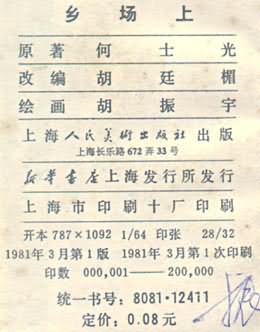 乡场上
原著 何士光
改编 胡廷楣
绘画 胡振宇
上海人民美術出版社出版
上海长乐路672弄33号
新华書店上海发行所发行
上海市印刷十厂印刷
开本787×1092 1/64 印张 28/32
1981年3月第1版 1981年3月第1次印刷
印数 000,001——200,000
统一书号：8081·12411
定价：0.08元